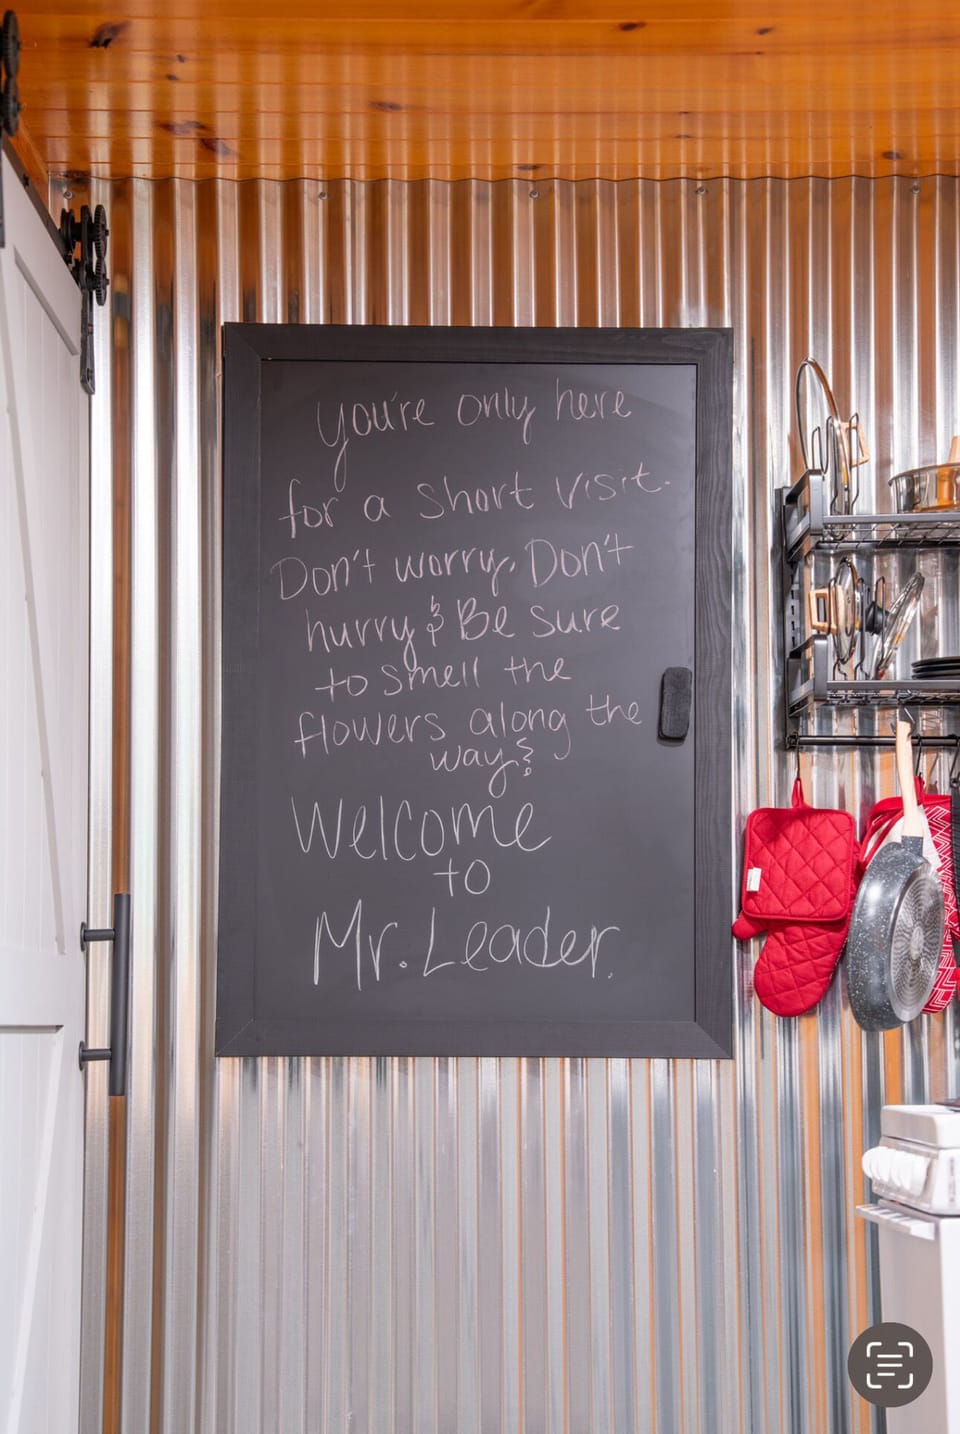 You're only here
for a short visit.
Don't worry, Don't
hurry & Be sure
to smell the
flowers along the
way &
Welcome
to
Mr. Leader.